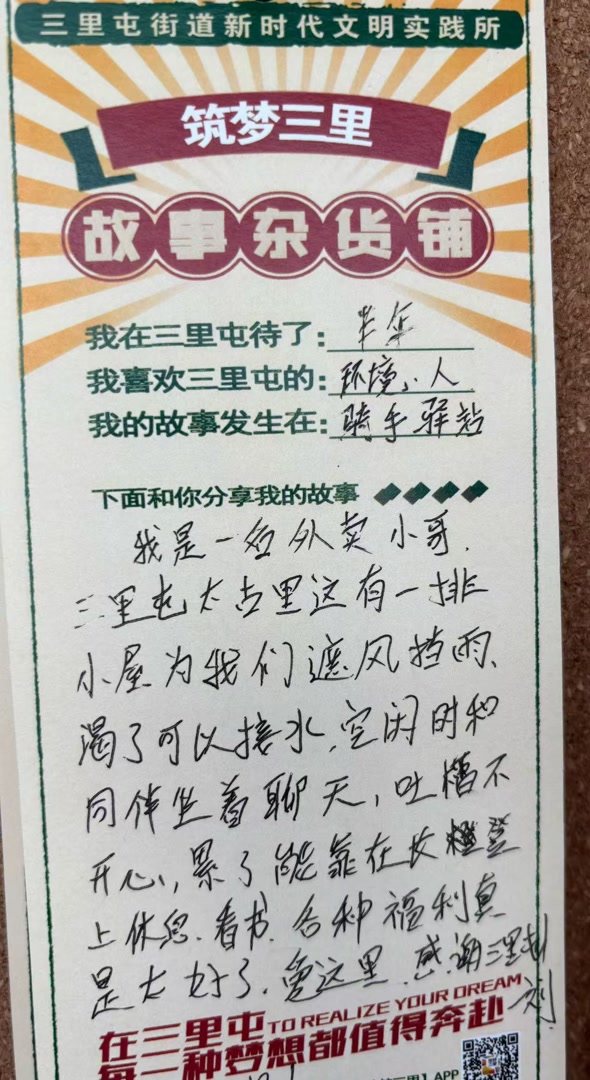 三里屯街道新时代文明实践所
筑梦三里
故事杂货铺
我在三里屯待了：半年
我喜欢三里屯的：环境、人
我的故事发生在：骑手驿站
下面和你分享我的故事
我是一名外卖小哥.
三里屯太古里这有一排
小屋为我们遮风挡雨、
渴了可以接水、空闲时和
同伴坐着聊天，吐槽不
开心，累了能靠在长凳
上休息、看书、各种福利真
是太好了、爱这里、感谢三里屯
刘
在三里屯 TO REALIZE YOUR DREAM
每一种梦想都值得奔赴
三里】APP